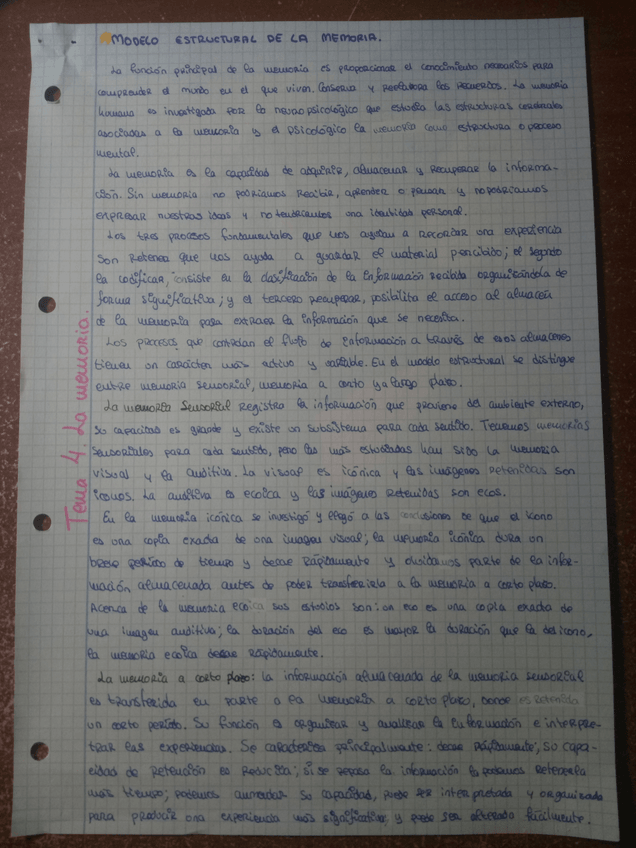 MODELO ESTRUCTURAL DE LA MEMORIA.
La función principal de la memoria es proporcionar el conocimiento necesarios para
comprender el mundo en el que viven. Conserva y reelabora los recuerdos. La memoria
humana es investigada por lo neuropsicológico que estudia las estructuras cerebrales
asociadas a la memoria y el psicológico la memoria como estructura o proceso
mental.
La memoria es la capacidad de adquirir, almacenar y recuperar la informa-
ción. Sin memoria no podríamos recibir, aprender o pensar y no podríamos
expresar nuestras ideas y no tendríamos una identidad personal.
Los tres procesos fundamentales que nos ayudan a recordar una experiencia
son retener que nos ayuda a guardar el material percibido; el segundo
la codificar, consiste en la clasificación de la información recibida organizándola de
forma significativa; y el tercero recuperar, posibilita el acceso al almacén
de la memoria para extraer la información que se necesita.
Los procesos que controlan el flujo de información a través de esos almacenes
tienen un carácter más activo y variable. En el modelo estructural se distingue
entre memoria sensorial, memoria a corto y a largo plazo.
La memoria sensorial registra la información que proviene del ambiente externo,
su capacidad es grande y existe un subsistema para cada sentido. Tenemos memorias
sensoriales para cada sentido, pero las más estudiadas han sido la memoria
visual y la auditiva. La visual es icónica y las imágenes retenidas son
iconos. La auditiva es ecoica y las imágenes retenidas son ecos.
En la memoria icónica se investigó y llegó a las conclusiones de que el icono
es una copia exacta de una imagen visual; la memoria icónica dura un
breve período de tiempo y decae rápidamente y olvidamos parte de la infor-
mación almacenada antes de poder transferirla a la memoria a corto plazo.
Acerca de la memoria ecoica sus estudios son: un eco es una copia exacta de
una imagen auditiva; la duración del eco es mayor la duración que la del icono,
la memoria ecoica decae rápidamente.
La memoria a corto plazo: la información almacenada de la memoria sensorial
es transferida en parte a la memoria a corto plazo, donde es retenida
un corto período. Su función es organizar y analizar la información e interpre-
trar las experiencias. Se caracteriza principalmente: decae rápidamente; su capa-
cidad de retención es reducida; si se repasa la información la podemos retenerla
más tiempo; podemos aumentar su capacidad, puede ser interpretada y organizada
para producir una experiencia más significativa; y puede ser alterado fácilmente.
Tema 4. La memoria.